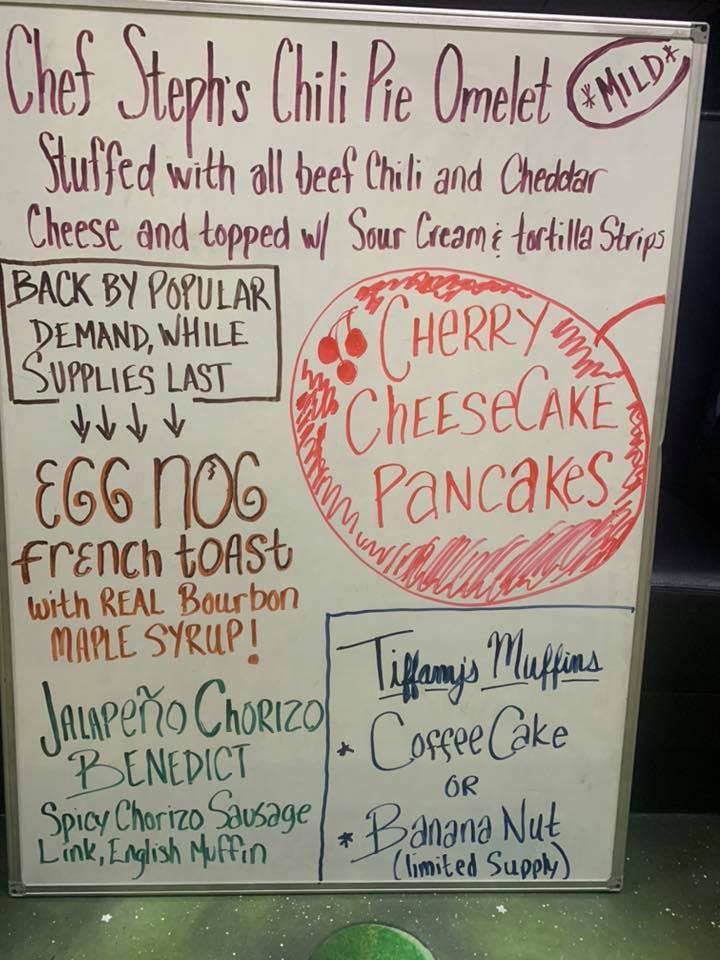 Chef Steph's Chili Pie Omelet *MILD*
Stuffed with all beef Chili and Cheddar
Cheese and topped w/ Sour Cream & tortilla Strips
BACK BY POPULAR
DEMAND, WHILE
SUPPLIES LAST
EGG NOG
FRENCH TOAST
with REAL Bourbon
MAPLE SYRUP!
CHERRY
CHEESECAKE
PANCAKES
JALAPEÑO CHORIZO
BENEDICT
Spicy Chorizo Sausage
Link, English Muffin
Tiffany's Muffins
* Coffee Cake
OR
* Banana Nut
(limited Supply)